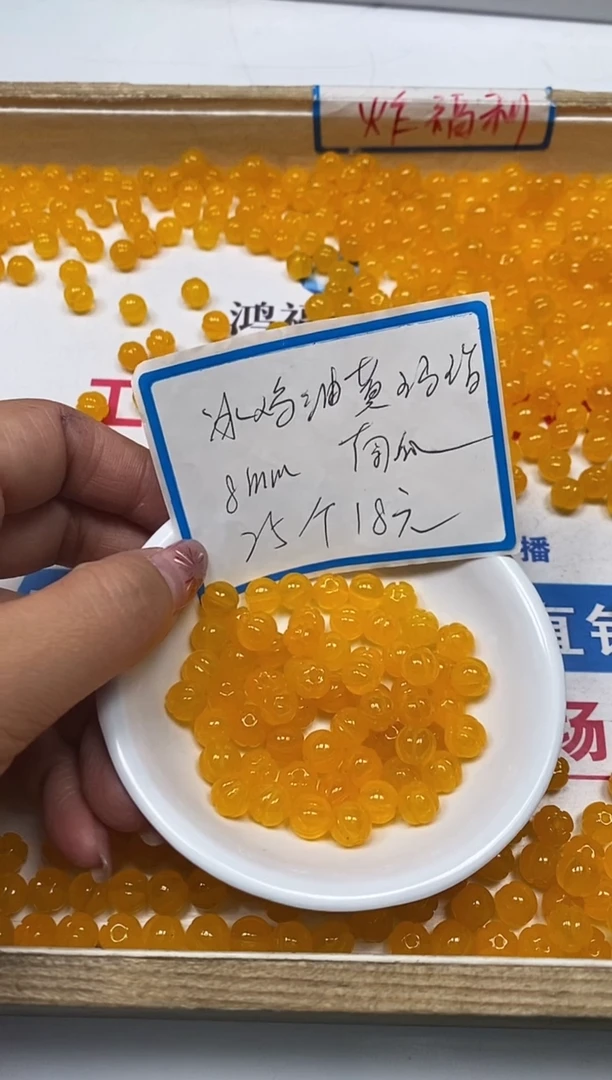 炸福利
鸿福
工
冰鸡油黄玛瑙
8mm 南瓜
25个18元
播
直销
场